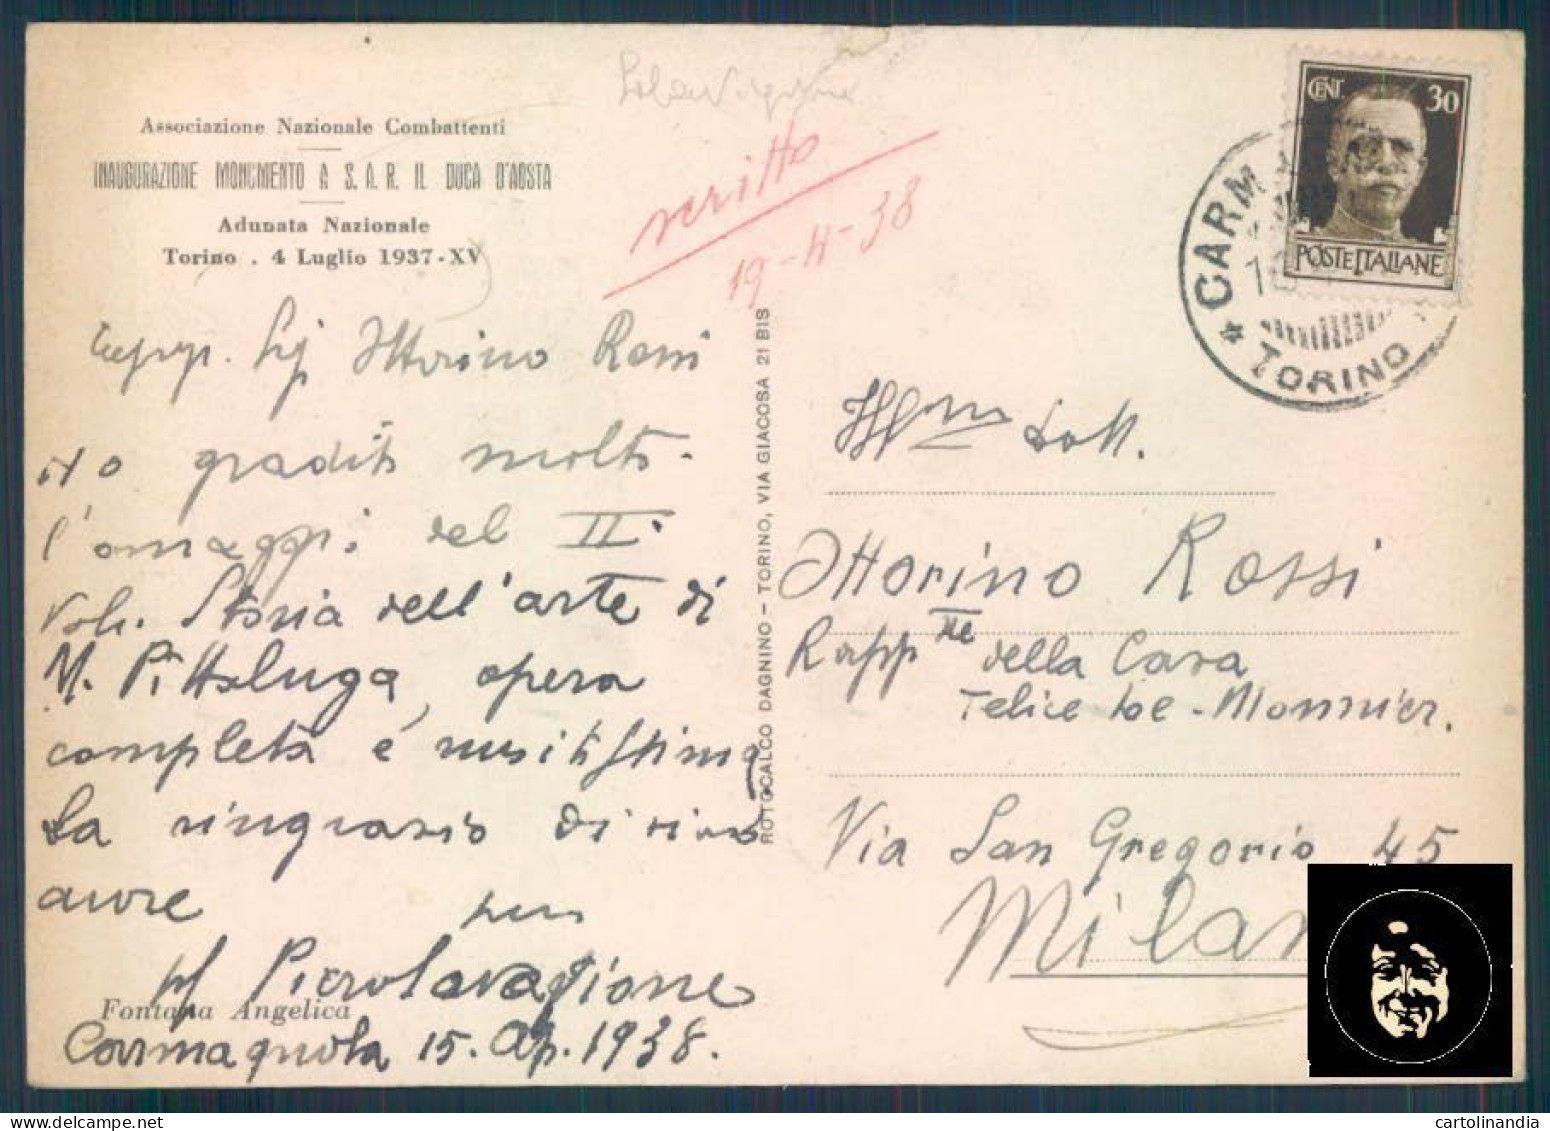 Associazione Nazionale Combattenti
INAUGURAZIONE MONUMENTO A S.A.R. IL DUCA D'AOSTA
Adunata Nazionale
Torino . 4 Luglio 1937-XV
scritto
19-4-38
CENT 30
POSTE ITALIANE
CARM
TORINO
Sig Ottorino Rossi
Ho gradito molto
l'omaggio del II
Vol. Storia dell'arte di
M. Pittaluga, opera
completa é
La ringrazio di
Piero Lavagione
Fontana Angelica
Carmagnola 15. Ap. 1938.
ROTOCALCO DAGNINO - TORINO, VIA GIACOSA 21 BIS
Ill.mo Dott.
Ottorino Rossi
Rapp.te della Casa
Felice Le-Monnier.
Via San Gregorio 45
Milan
cartolinandia